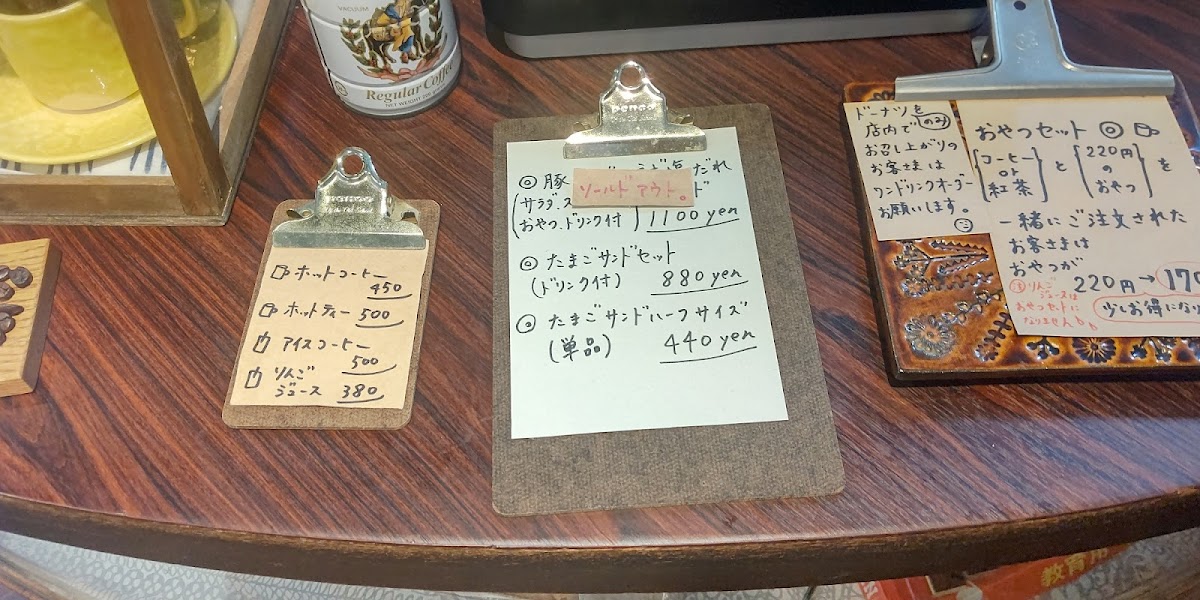 VACUUM
Regular Coffee
ホットコーヒー
450
ホットティー 500
アイスコーヒー
500
りんご
ジュース 380
penco
◎豚
塩だれ
ソールドアウト。
サラダ.ス
おやつ.ドリンク付
1100 yen
◎たまごサンドセット
(ドリンク付) 880 yen
◎たまごサンドハーフサイズ
(単品) 440 yen
ドーナツを
店内でのみ
お召し上がりの
お客さまは
ワンドリンクオーダー
お願いします。
おやつセット ◎
コーヒー
or
紅茶
と
220円
の
おやつ
を
一緒にご注文された
お客さまは
おやつが
220円→170
少しお得にな
りんご
ジュースは
おやつセットに
なりません
教育